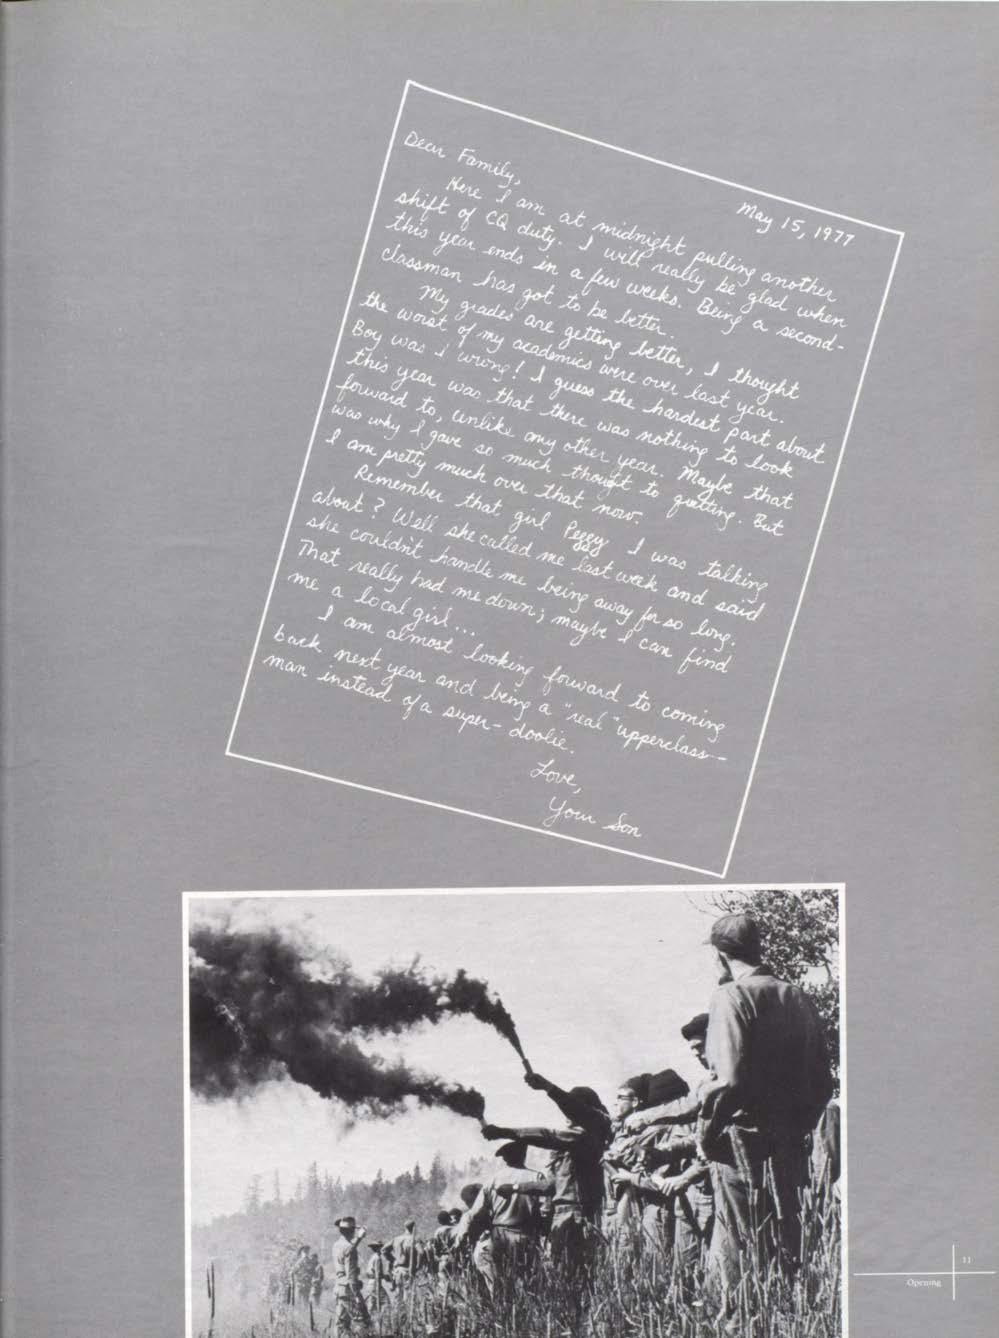 May 15, 1977
Dear Family,
Here I am at midnight pulling another
shift of CQ duty. I will really be glad when
this year ends in a few weeks. Being a second-
classman has got to be better.
My grades are getting better, I thought
the worst of my academics were over last year.
Boy was I wrong! I guess the hardest part about
this year was that there was nothing to look
forward to, unlike any other year. Maybe that
was why I gave so much thought to quitting. But
I am pretty much over that now.
Remember that girl Peggy I was talking
about? Well she called me last week and said
she couldn't handle me being away for so long.
That really had me down; maybe I can find
me a local girl...
I am almost looking forward to coming
back next year and being a "real" upperclass-
man instead of a super-doolie.
Love,
Your Son
11
Opening